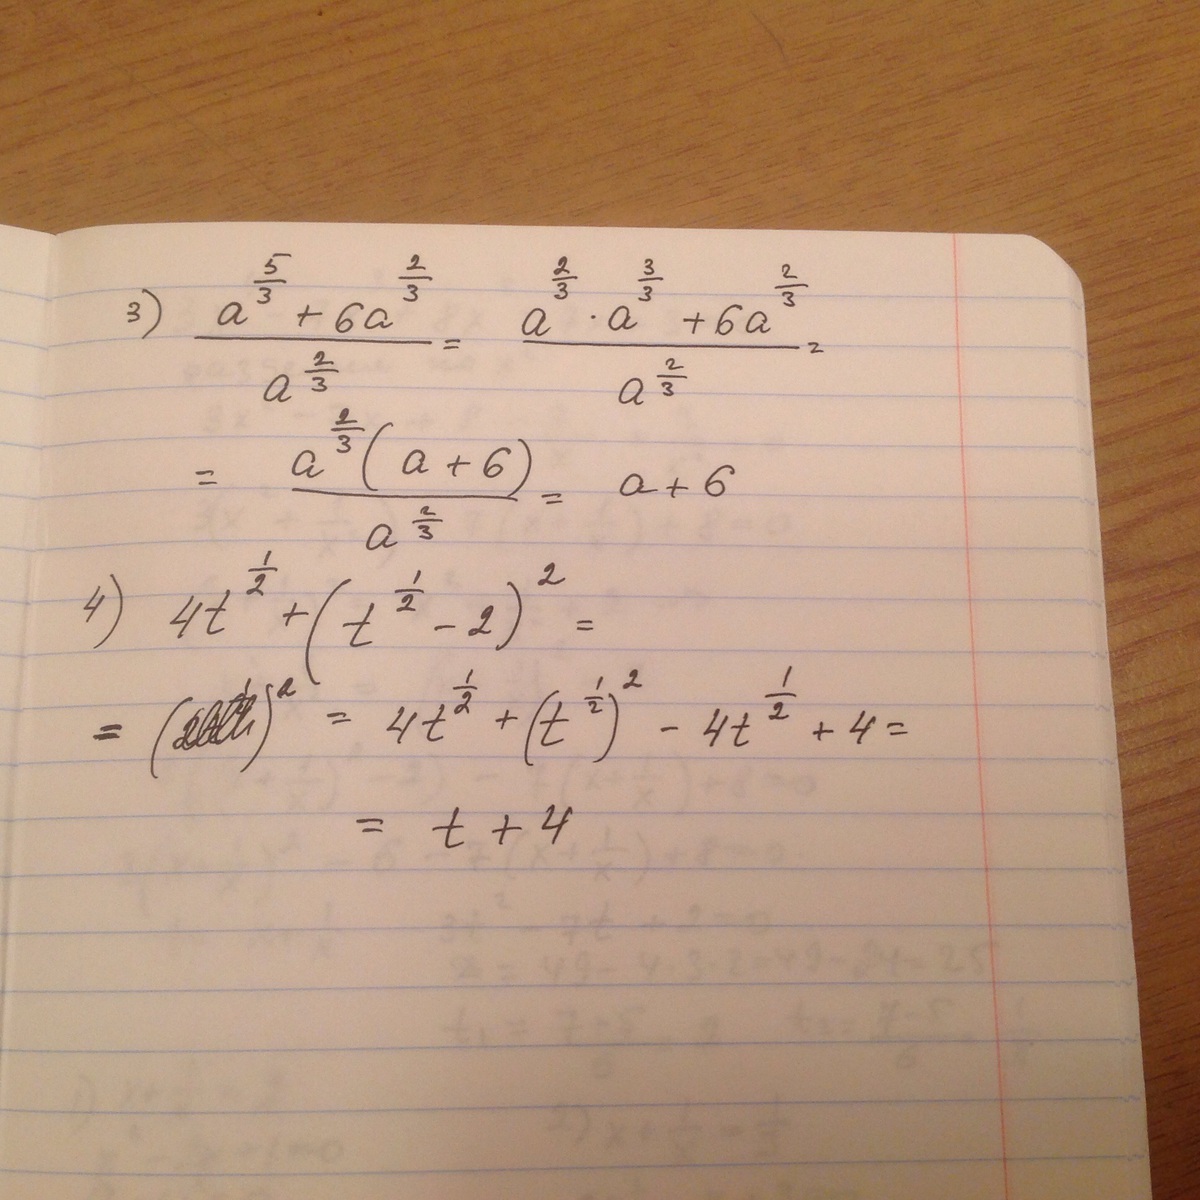 3) (a^(5/3) + 6a^(2/3)) / a^(2/3) = (a^(2/3) · a^(3/3) + 6a^(2/3)) / a^(2/3) =
= (a^(2/3) (a + 6)) / a^(2/3) = a + 6
4) 4t^(1/2) + (t^(1/2) - 2)^2 =
= ( )^2 = 4t^(1/2) + (t^(1/2))^2 - 4t^(1/2) + 4 =
= t + 4